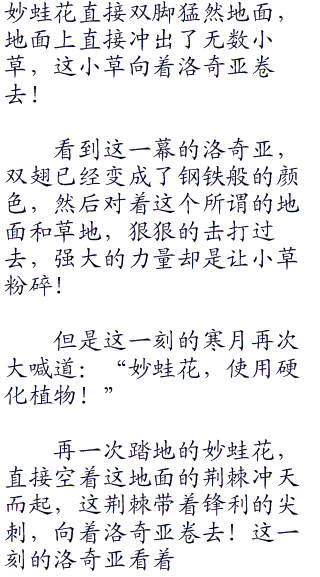 妙蛙花直接双脚猛然地面，
地面上直接冲出了无数小
草，这小草向着洛奇亚卷
去！
看到这一幕的洛奇亚，
双翅已经变成了钢铁般的颜
色，然后对着这个所谓的地
面和草地，狠狠的击打过
去，强大的力量却是让小草
粉碎！
但是这一刻的寒月再次
大喊道：“妙蛙花，使用硬
化植物！”
再一次踏地的妙蛙花，
直接空着这地面的荆棘冲天
而起，这荆棘带着锋利的尖
刺，向着洛奇亚卷去！这一
刻的洛奇亚看着